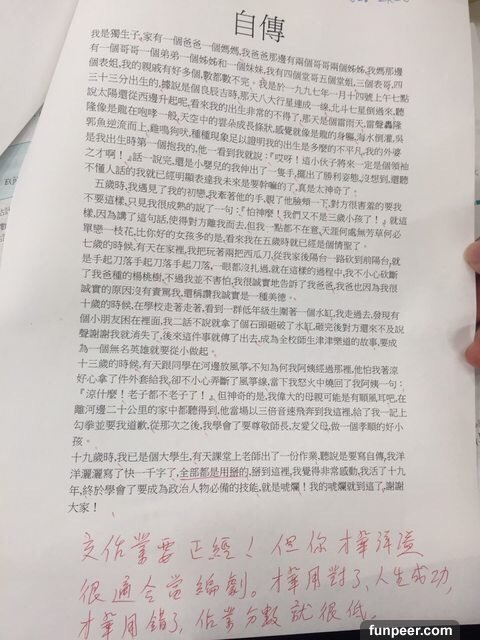 自傳
我是獨生子,家有一個爸爸一個媽媽,我爸爸那邊有兩個哥哥兩個姊姊,我媽那邊
有一個哥哥一個弟弟一個姊姊和一個妹妹,我有四個堂哥五個堂姐,三個表哥,四
個表姐,我的親戚有好多個,數都數不完。我是於一九九七年一月十四號上午七點
三十三分出生的,據說是個良辰吉時,那天八大行星連成一線,北斗七星倒過來,聽
說太陽還從西邊升起呢,看來我的出生非常的不得了,那天是個雷雨天,雷聲轟隆
隆像是龍在咆哮一般,天空中的雲朵成長條狀,感覺就像是龍的身軀,海水倒灌,吳
郭魚逆流而上,雞鳴狗吠,種種現象足以證明我的出生是多麼的不平凡,我的外婆
是我出生時第一個抱我的,他一看到我就說:『哎呀!這小伙子將來一定是個領袖
之才啊!』話一說完,還是小嬰兒的我伸出了一隻手,擺出了勝利姿態,沒想到,還聽
不懂人話的我就已經明顯表達我未來是要幹嘛的了,真是太神奇了;
五歲時,我遇見了我的初戀,我牽著他的手,親了他臉頰一下,對方很害羞的要我
不要這樣,只見我很成熟的說了一句:『怕神麼!我們又不是三歲小孩了!』就這
樣,因為講了這句話,使得對方離我而去,但我一點都不在意,天涯何處無芳草何必
單戀一枝花,比你好的女孩多的是,看來我在五歲時就已經是個情聖了。
七歲的時候,有天在家裡,我把玩著兩把西瓜刀,從我家後陽台一路砍到前陽台,就
是手起刀落手起刀落手起刀落,一眼都沒扎過,就在這樣的過程中,我不小心砍斷
了我爸種的楊桃樹,不過我並不害怕,我很誠實地告訴了我爸爸,我爸也因為我很
誠實的原因沒有責罵我,還稱讚我誠實是一種美德。
十歲的時候,在學校走著走著,看到一群低年級生圍著一個水缸,我走過去,發現有
個小朋友困在裡面,我二話不說就拿了個石頭砸破了水缸,砸完後對方還來不及說
聲謝謝我就消失了,後來這件事就傳了出去,成為全校師生津津樂道的故事,要成
為一個無名英雄就要從小做起。
十三歲的時候,有天跟同學在河邊放風箏,不知為何我阿姨經過那裡,他怕我著涼
好心拿了件外套給我,卻不小心弄斷了風箏線,當下我怒火中燒回了我阿姨一句:
『涼什麼!老子都不老子了!』但神奇的是,我偉大的母親可能是有順風耳吧,在
離河邊二十公里的家中都聽得到,他當場以三倍音速飛奔到我這裡,給了我一記上
勾拳並要我道歉,從那次之後,我學會了要尊敬師長,友愛父母,做一個孝順的好小
孩。
十九歲時,我已是個大學生,有天課堂上老師出了一份作業,聽說是要寫自傳,我洋
洋灑灑寫了快一千字了,全部都是用掰的,掰到這裡,我覺得非常感動,我活了十九
年,終於學會了要成為政治人物必備的技能,就是唬爛!我的唬爛就到這了,謝謝
大家!
交作業要正經!但你才華洋溢
很適合當編劇。才華用對了,人生成功,
才華用錯了,作業分數就很低。
funpeer.com